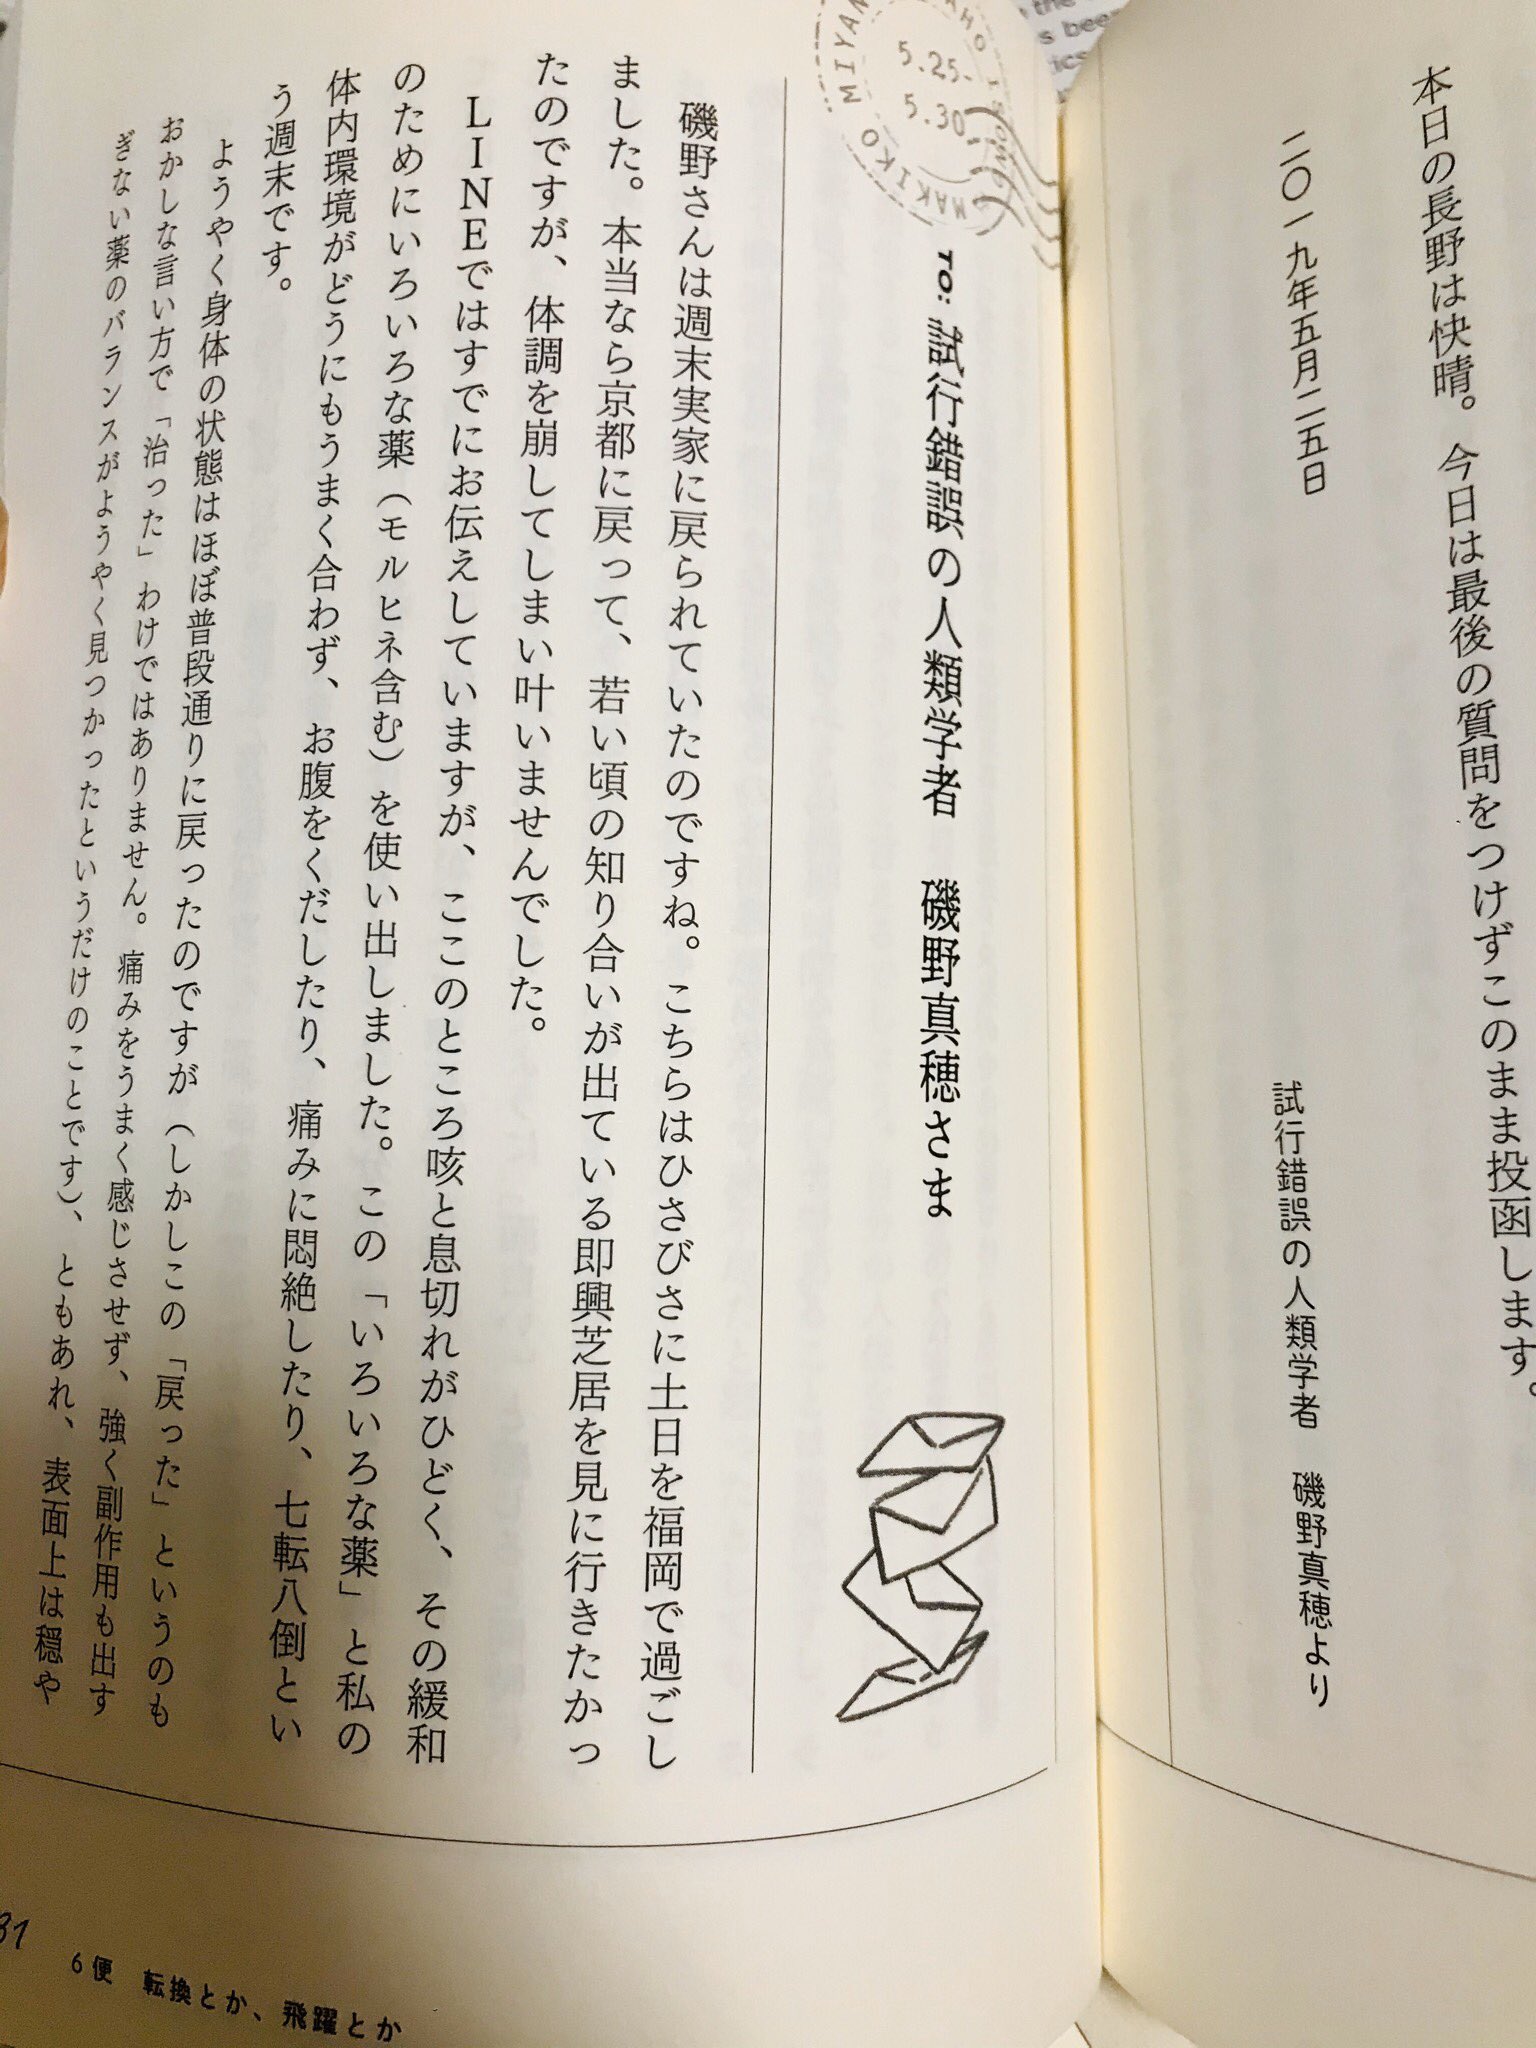 本日の長野は快晴。今日は最後の質問をつけずこのまま投函します。
二〇一九年五月二五日
試行錯誤の人類学者　磯野真穂より
5.25-
5.30.
MAKIKO MIYANO
TO: 試行錯誤の人類学者　磯野真穂さま
磯野さんは週末実家に戻られていたのですね。こちらはひさびさに土日を福岡で過ごし
ました。本当なら京都に戻って、若い頃の知り合いが出ている即興芝居を見に行きたかっ
たのですが、体調を崩してしまい叶いませんでした。
LINEではすでにお伝えしていますが、ここのところ咳と息切れがひどく、その緩和
のためにいろいろな薬（モルヒネ含む）を使い出しました。この「いろいろな薬」と私の
体内環境がどうにもうまく合わず、お腹をくだしたり、痛みに悶絶したり、七転八倒とい
う週末です。
ようやく身体の状態はほぼ普段通りに戻ったのですが（しかしこの「戻った」というのも
おかしな言い方で「治った」わけではありません。痛みをうまく感じさせず、強く副作用も出す
ぎない薬のバランスがようやく見つかったというだけのことです）、ともあれ、表面上は穏や
6便　転換とか、飛躍とか